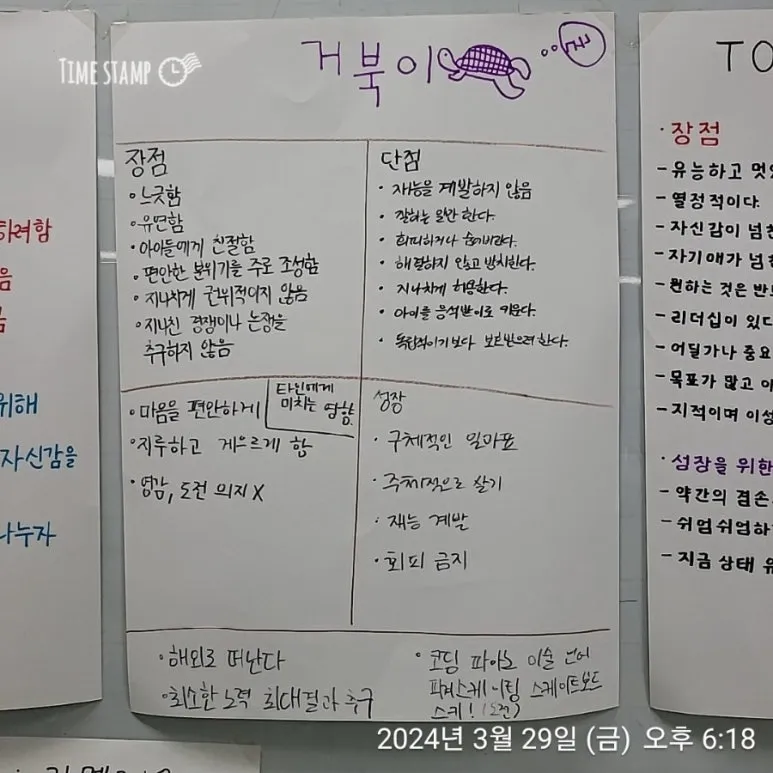 TIME STAMP
거북이
장점
• 느긋함
• 유연함
• 아이들에게 친절함
• 편안한 분위기를 주로 조성함
• 지나치게 권위적이지 않음
• 지나친 경쟁이나 논쟁을
추구하지 않음
단점
• 재능을 계발하지 않음
• 잘하는 일만 한다.
• 회피하거나 숨어버린다.
• 해결하지 않고 방치한다.
• 지나치게 허용한다.
• 아이를 응석받이로 키운다.
• 독립적이기보다 보호받으려 한다.
타인에게
미치는 영향
• 마음을 편안하게
• 지루하고 게으르게 함
• 영감, 도전 의지 X
성장
• 구체적인 일과표
• 주체적으로 살기
• 재능 계발
• 회피 금지
• 해외로 떠난다
• 최소한 노력 최대결과 추구
• 코딩 피아노 미술 언어
스케이트보드
스키! (도전)
하려함
음
음
위해
자신감을
나누자
TO
• 장점
- 유능하고 멋있
- 열정적이다
- 자신감이 넘친
- 자기애가 넘친
- 원하는 것은 반드
- 리더십이 있다
- 어딜가나 중요
- 목표가 많고 이
- 지적이며 이성
• 성장을 위한
- 약간의 겸손
- 쉬엄쉬엄하
- 지금 상태 유
2024년 3월 29일 (금) 오후 6:18